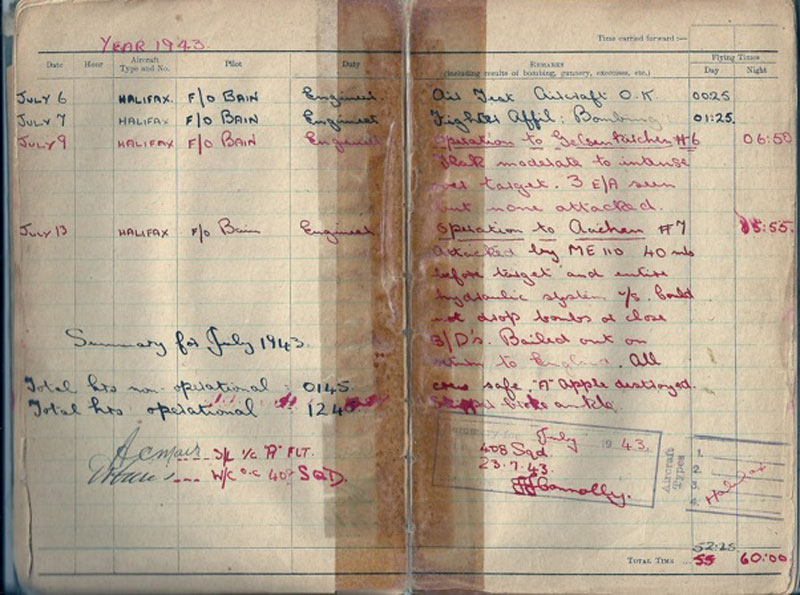 YEAR 1943.
Time carried forward :—
Date Hour Aircraft Type and No. Pilot Duty REMARKS (including results of bombing, gunnery, exercises, etc.) Flying Times Day Night
JULY 6 HALIFAX. F/O BAIN Engineer. Air Test Aircraft O.K 0025
JULY 7 HALIFAX F/O BAIN Engineer Fighter Affil: Bombing 01:25.
JULY 9 HALIFAX F/O BAIN Engineer Operation to Gelsenkirchen #6 06:50
Flak moderate to intense
over target. 3 E/A seen
but none attacked.
JULY 13 HALIFAX F/O Bain Engineer Operation to Aachen #7 05:55
attacked by ME 110 40 mls
before target and entire
hydraulic system u/s. Could
not drop bombs or close
B/D's. Bailed out on
return to England. All
crew safe. "A" Apple destroyed.
Skipper broke ankle.
Summary for July 1943.
Total hrs non operational = 0145.
Total hrs operational = 1245
S/L i/c "A" FLT.
W/C o.c 408 SQD.
Summary for July 1943.
408 Sqd
23.7.43.
Connolly.
Aircraft Types
1.
2.
3.
4.
Halifax
52:25
TOTAL TIME ... 55 60:00